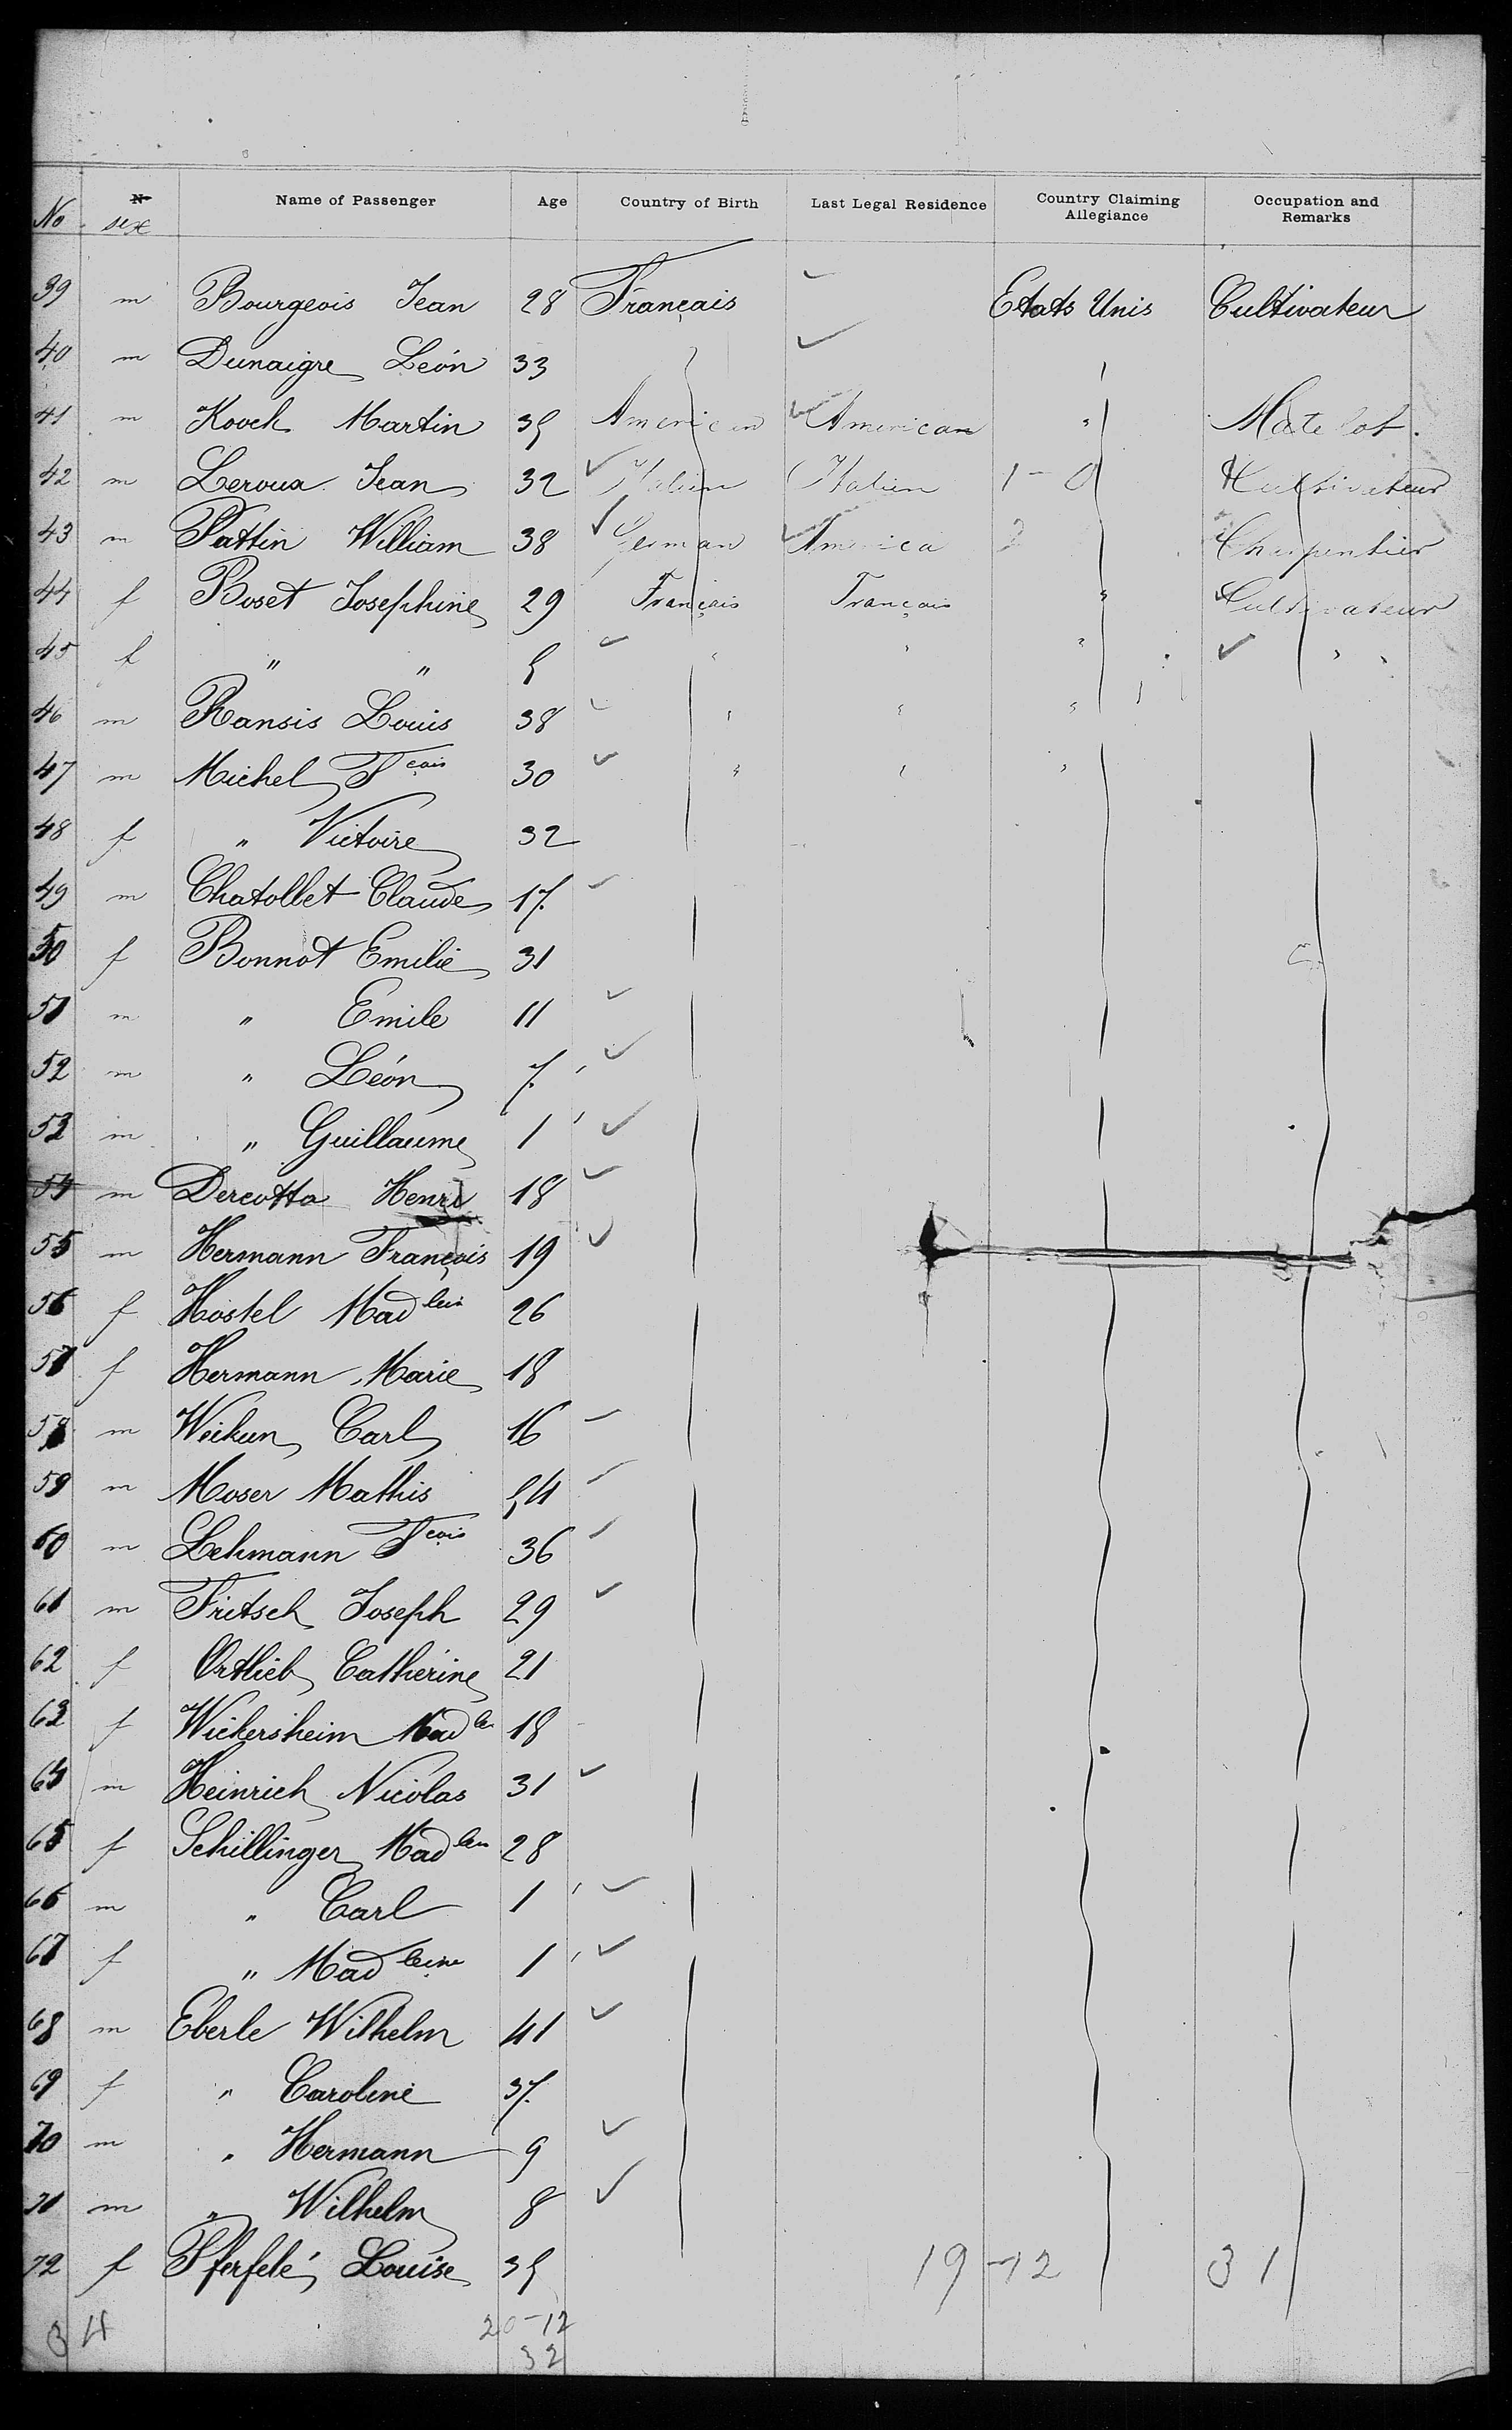 No N sex Name of Passenger Age Country of Birth Last Legal Residence Country Claiming Allegiance Occupation and Remarks
39 m Bourgeois Jean 28 Français Etats Unis Cultivateur
40 m Dunaigre Léon 33
41 m Koock Martin 35 American American " Matelot.
42 m Leroux Jean 32 Italien Italien 1-0 Cultivateur
43 m Pattin William 38 German America 2 Charpentier
44 f Boset Josephine 29 Français Français " Cultivateur
45 f " " 5 " " " "
46 m Ransis Louis 38 " " "
47 m Michel Fçois 30 " " "
48 f " Victoire 32
49 m Chatollet Claude 17
50 f Bonnot Emilie 31
51 m " Emile 11
52 m " Léon 7
53 m " Guillaume 1
54 m Dercotta Henri 18
55 m Hermann François 19
56 f Hostel Madlein 26
57 f Hermann Marie 18
58 m Weikun Carl 16
59 m Moser Mathis 54
60 m Lehmann Fçois 36
61 m Fritsch Joseph 29
62 f Ortlieb Catherine 21
63 f Wickersheim Madle 18
64 m Heinrich Nicolas 31
65 f Schillinger Madlen 28
66 m " Carl 1
67 f " Madleine 1
68 m Eberle Wilhelm 41
69 f " Caroline 37
70 m " Hermann 9
71 m " Wilhelm 8
72 f Pferfelé Louise 35 19-12 31
34 20-12
32